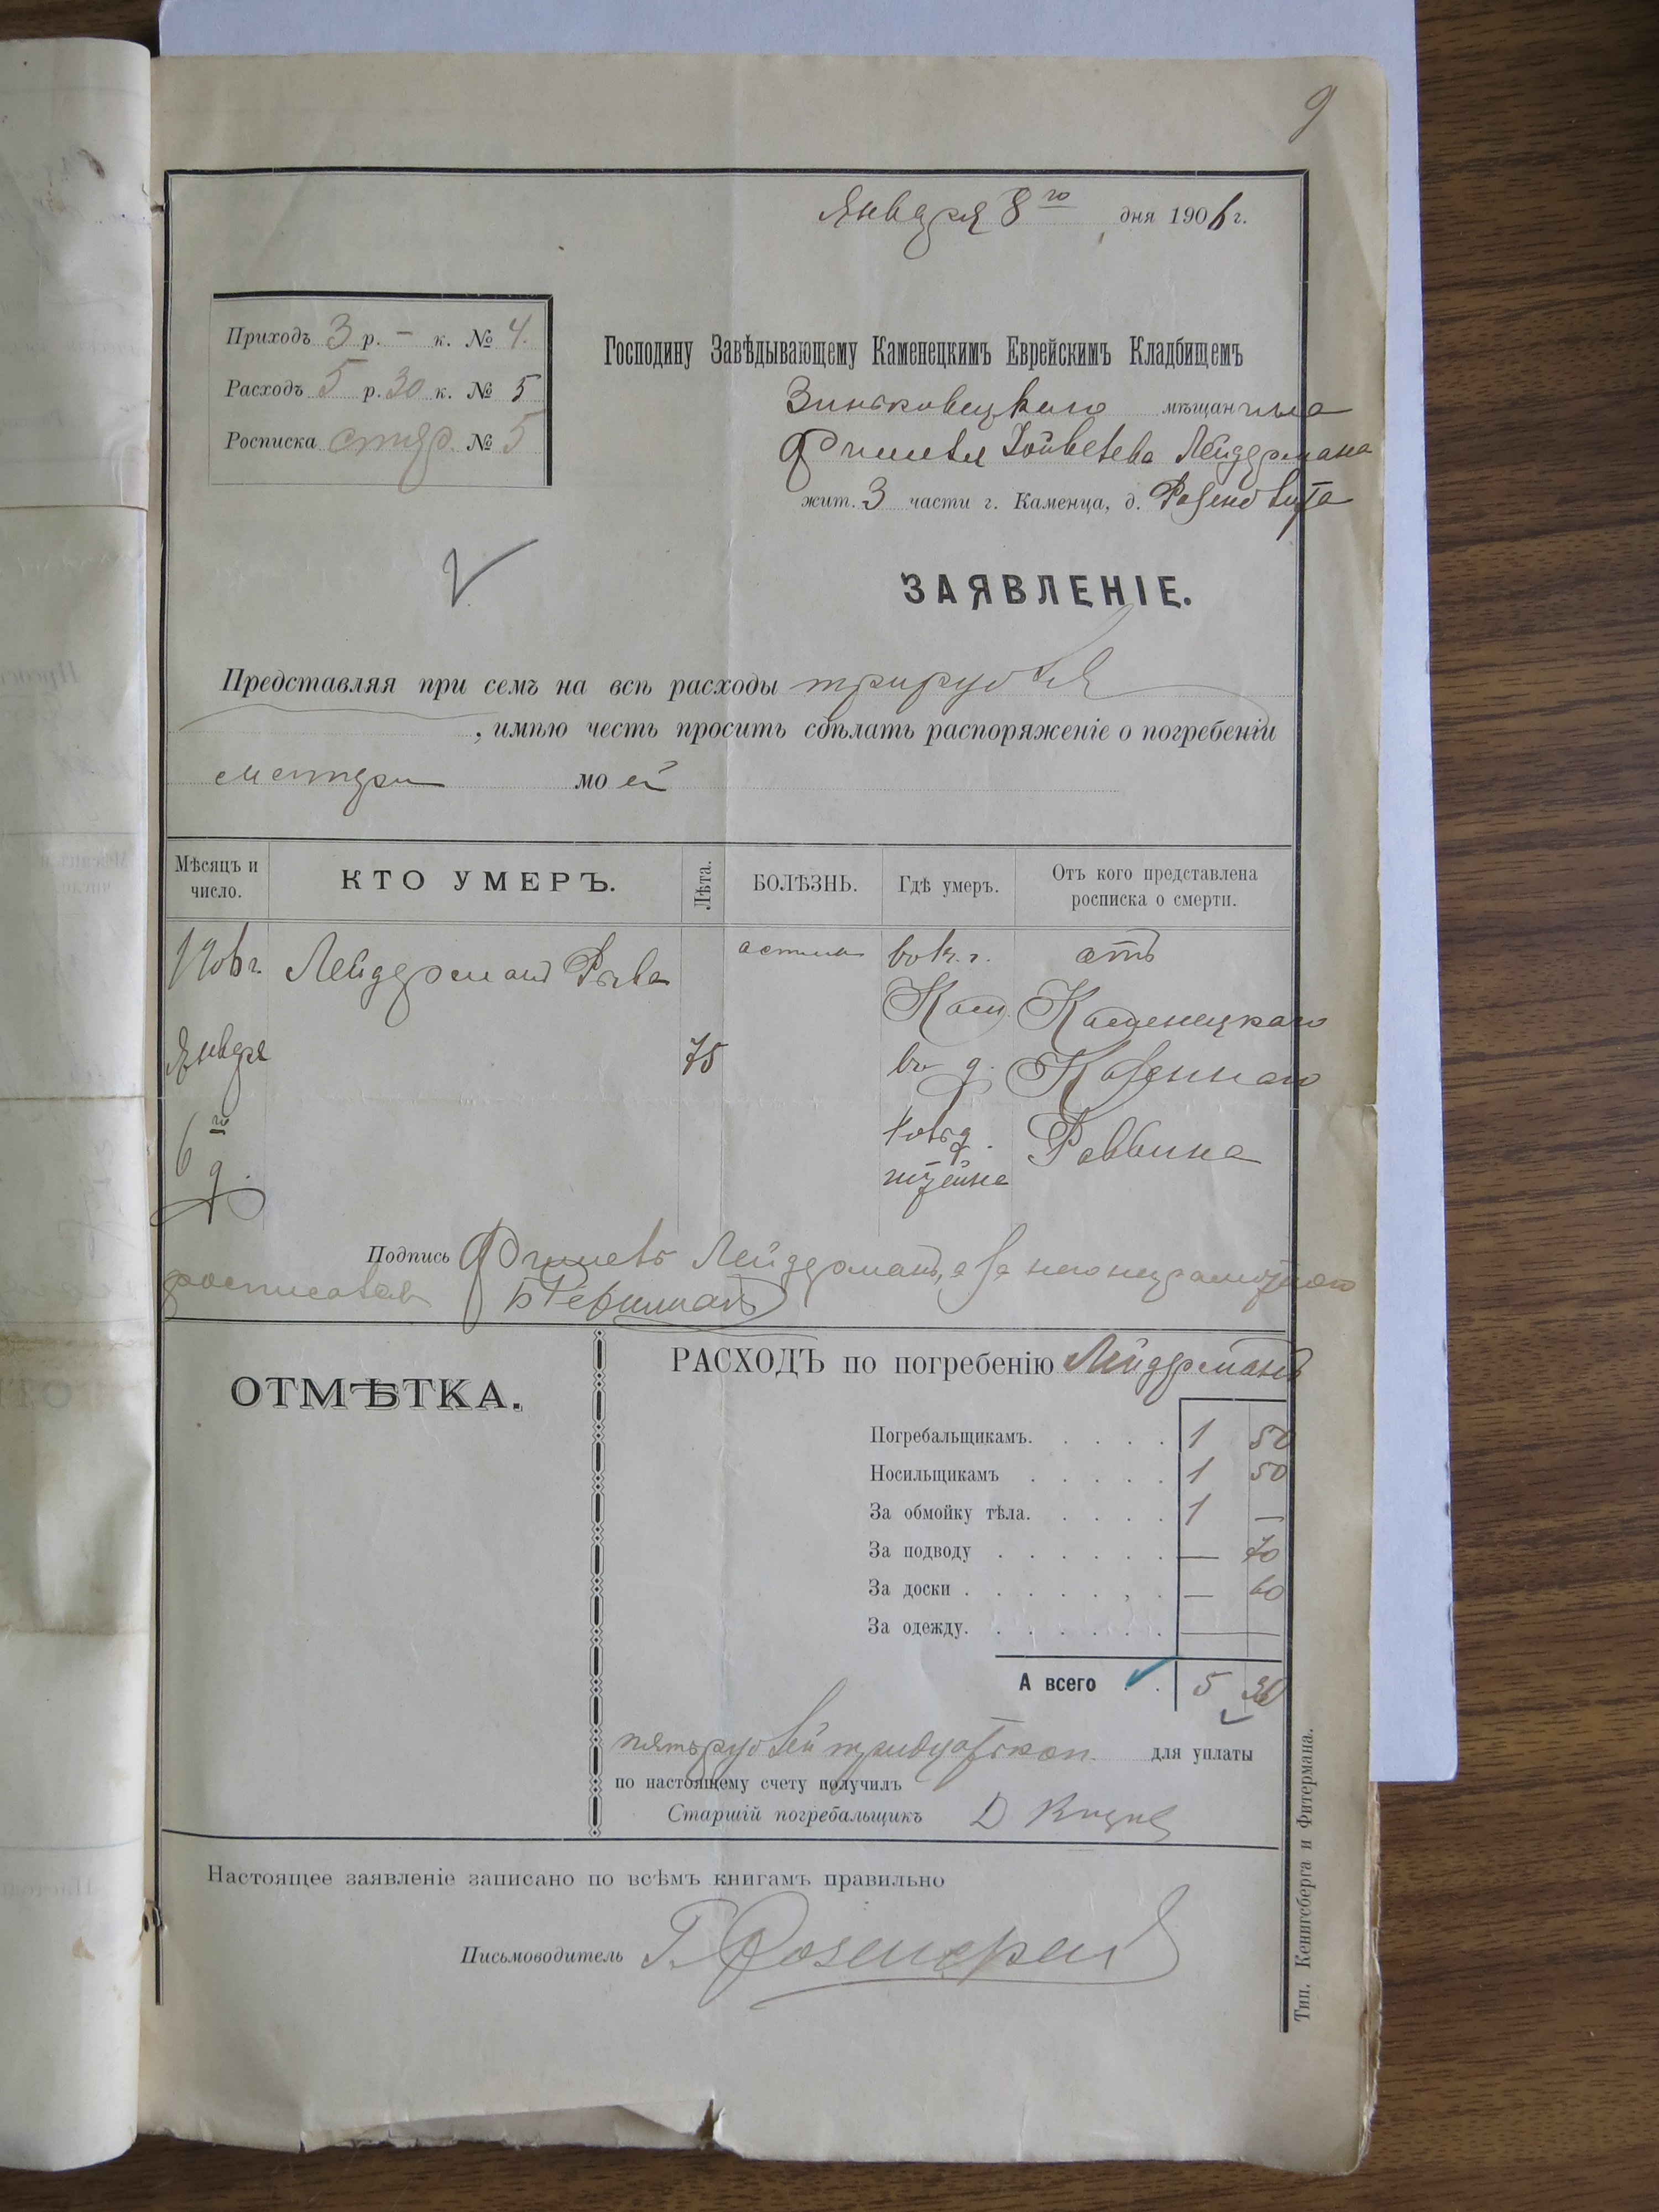 9
Января 8го дня 1906 г.
Приходъ 3 р. – к. № 4.
Расходъ 5 р. 30 к. № 5
Росписка стар. № 5
Господину Завѣдывающему Каменецкимъ Еврейскимъ Кладбищемъ
Зиньковецкаго мѣщанина
Фишеля Лейдермана
жит. 3 части г. Каменца, д.
ЗАЯВЛЕНІЕ.
Представляя при семъ на всѣ расходы три рубля
, имѣю честь просить сдѣлать распоряженіе о погребеніи
матери моей
Мѣсяцъ и число.
КТО УМЕРЪ.
Лѣта.
БОЛѢЗНЬ.
Гдѣ умеръ.
Отъ кого представлена росписка о смерти.
1906 г.
Января
6го
д.
Лейдерманъ Рыва
75
астма
въ г.
Кам.
въ д.
отъ
Каменецкаго
Казеннаго
Раввина
Подпись Фишель Лейдерманъ, а за него неграмотнаго
росписался
ОТМѢТКА.
РАСХОДЪ по погребенію Лейдерманъ
Погребальщикамъ. . . . . 1 50
Носильщикамъ . . . . . 1 50
За обмойку тѣла. . . . . 1 —
За подводу . . . . . . — 70
За доски . . . . . . — 60
За одежду. . . . . . . —
А всего . . 5 30
пять рублей тридцать коп. для уплаты
по настоящему счету получилъ
Старшій погребальщикъ Д
Настоящее заявленіе записано по всѣмъ книгамъ правильно
Письмоводитель Г.
Тип. Кенигсберга и Фитермана.